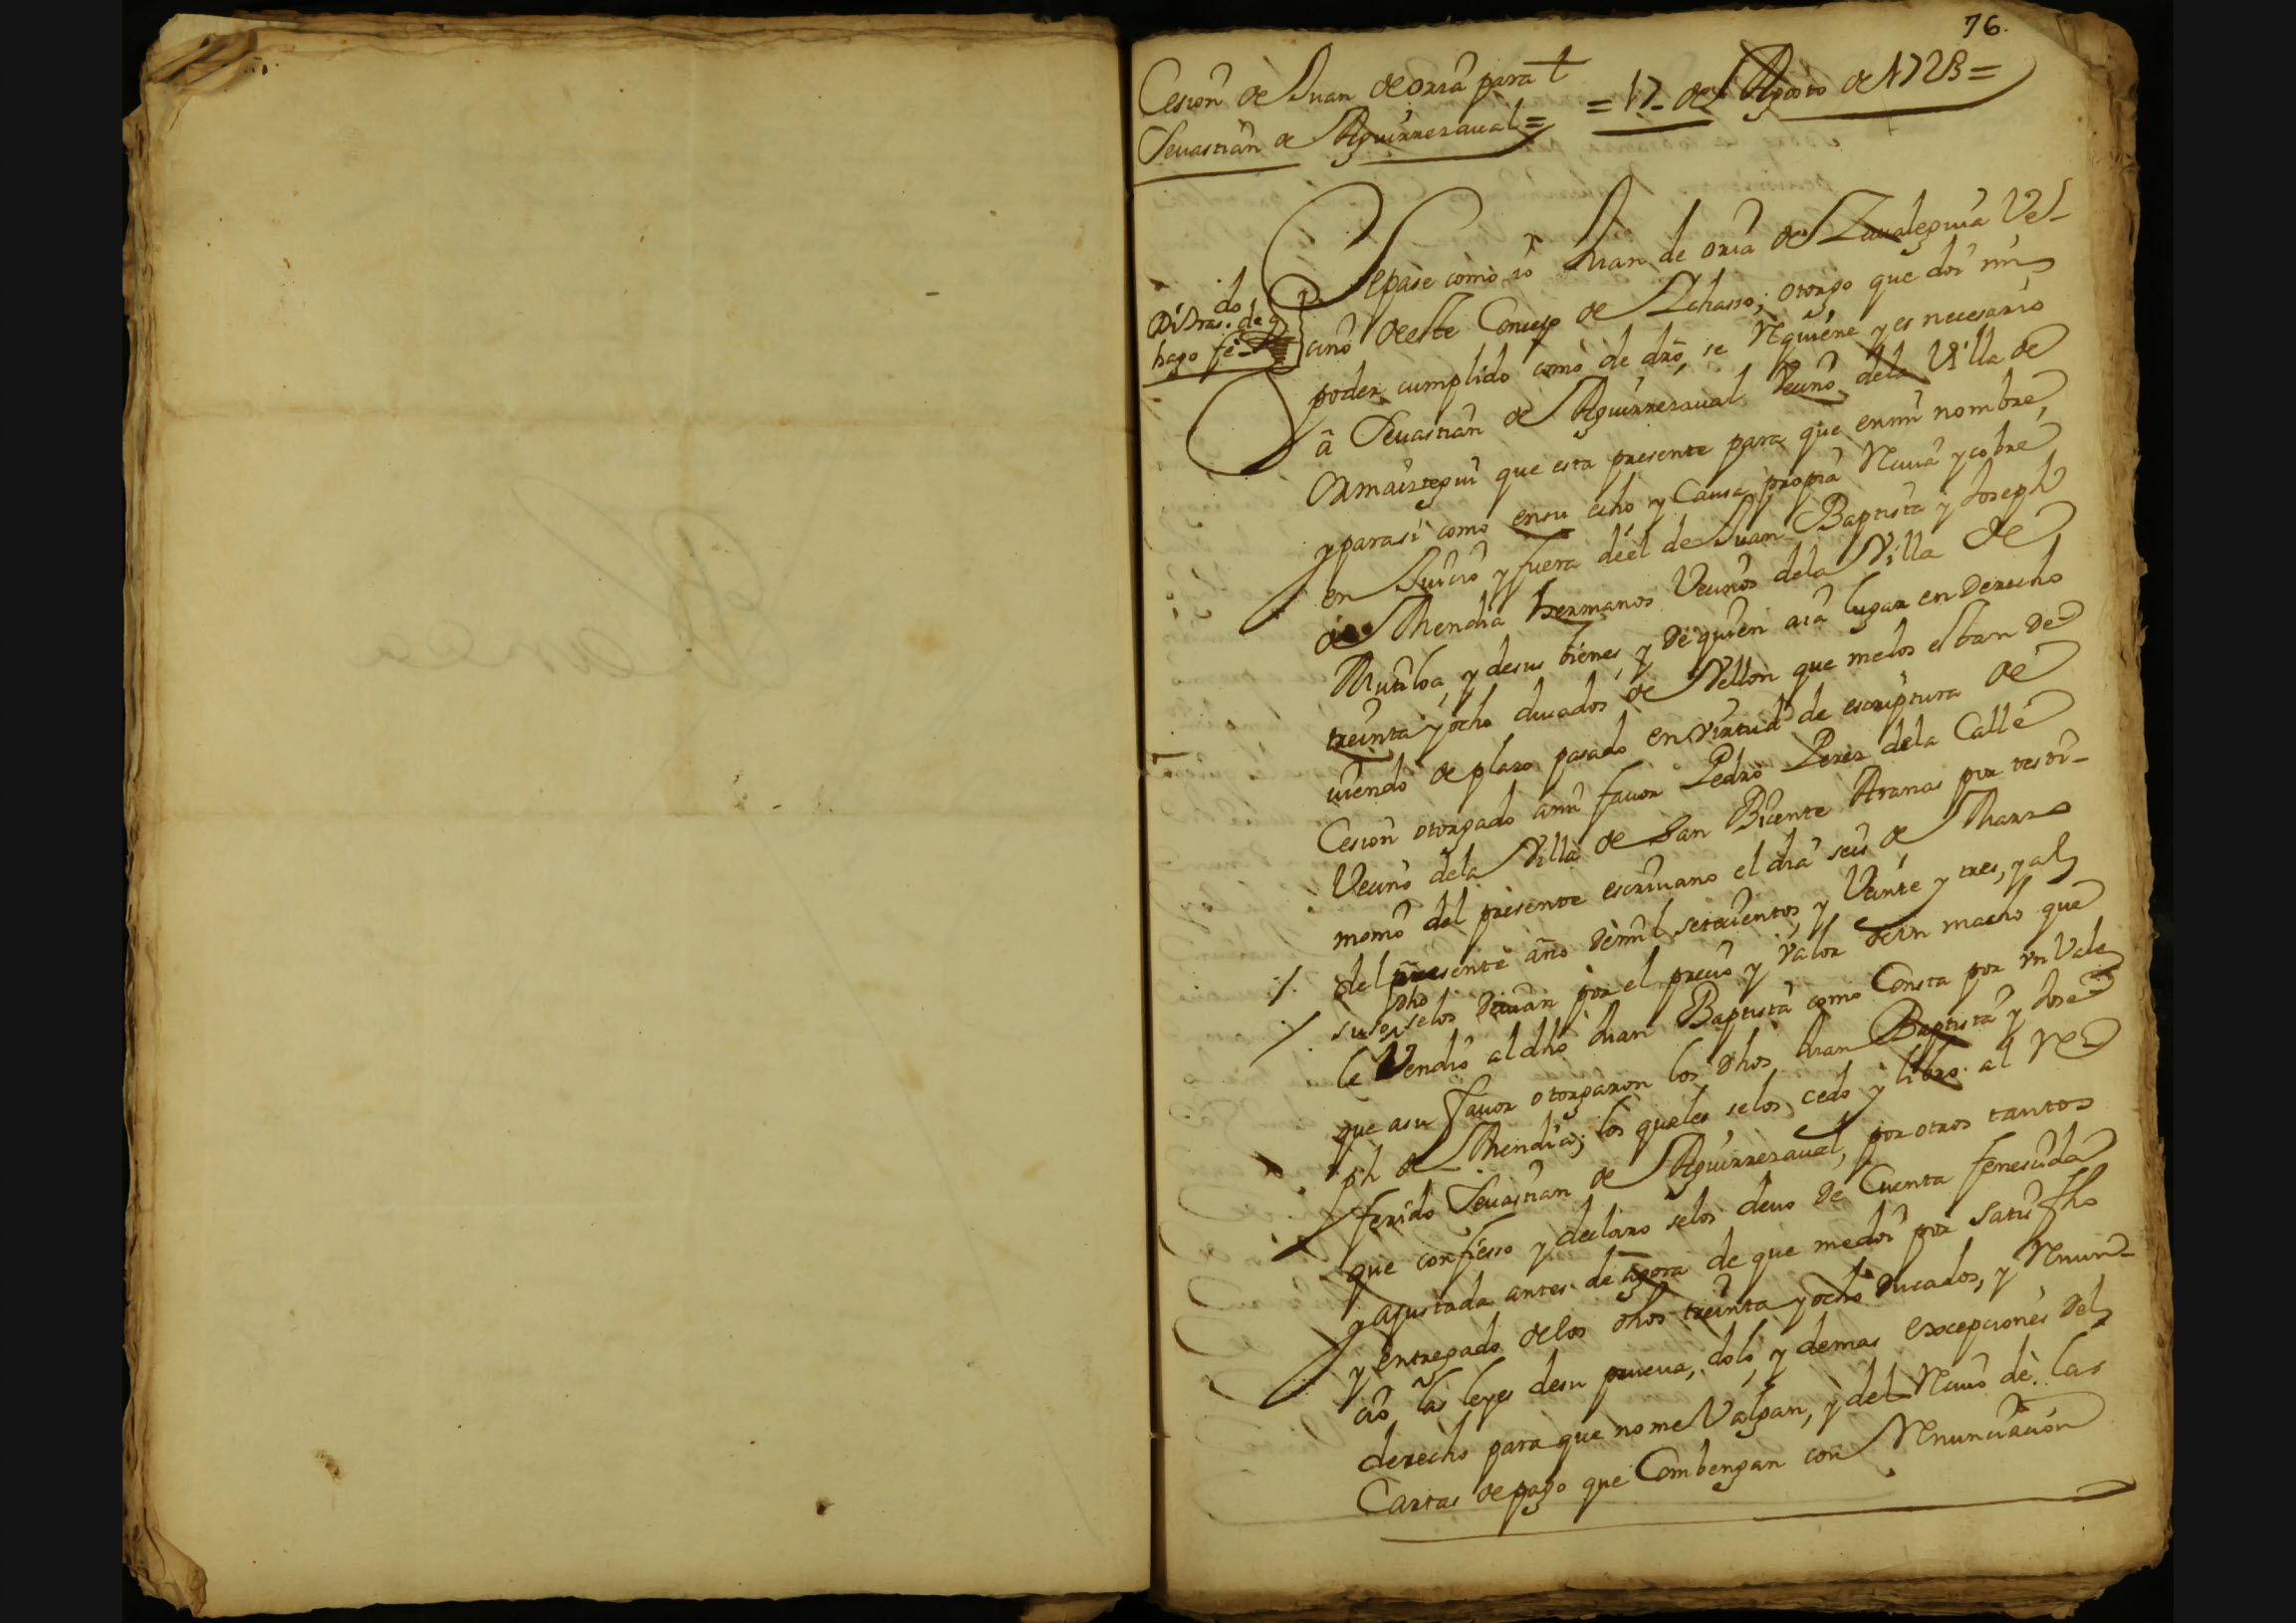 76.
Cesion de Juan de oria para
Sevastian de Aguirrezaual =
= 17 de Agosto de 1723 =
Sepase como io Juan de oria de Zaualeguia Ve-
do
Di Tras. de q
hago fe
cino deeste Concejo de Ychasso; otorgo que doi mi
poder cumplido como de dro, se Requiere y es necesario
â Sevastian de Aguirrezaual Vecino dela Villa de
Ormaiztegui que esta presente para que enmi nombre,
y parasi como ensu echo y Causa propia Reciua y cobre
en Juicio y fuera deel de Juan Baptista y Joseph
de Mendia hermanos Vecinos dela Villa de
Mutiloa, y desus bienes, y de quien aia lugar en Derecho
treinta y ocho ducados de Vellon que melos estan De-
uiendo de plazo pasado en virtud de escriptura de
Cesion otorgado ami fauor Pedro Perez dela Calle
Vecino dela Villa de San Bicente Aranas por testi-
monio del presente escriuano el dia seis de Marzo
del presente año Demil setecientos, y Veinte y tres, y al
dho
suso selos Deuian por el precio y valor deun macho que
le Vendio aldho Juan Baptista como Consta por vn Vale
que asu fauor otorgaron los Dhos Juan Baptista y Jose-
ph de Mendia; los quales selos cedo y libro al Re-
ferido Sevastian de Aguirrezaual, por otros tantos
que confiesso y declaro selos deuo De Cuenta fenecida
y ajustada antes de agora de que medoi por satisfho
y entregado delos dhos treinta y ocho Ducados, y Renun-
cio las leyes desu prueua, dolo, y demas excepciones Del
derecho para que nome Valgan, y del Reciuo de las
Cartas de pago que Combengan con Renunciacion